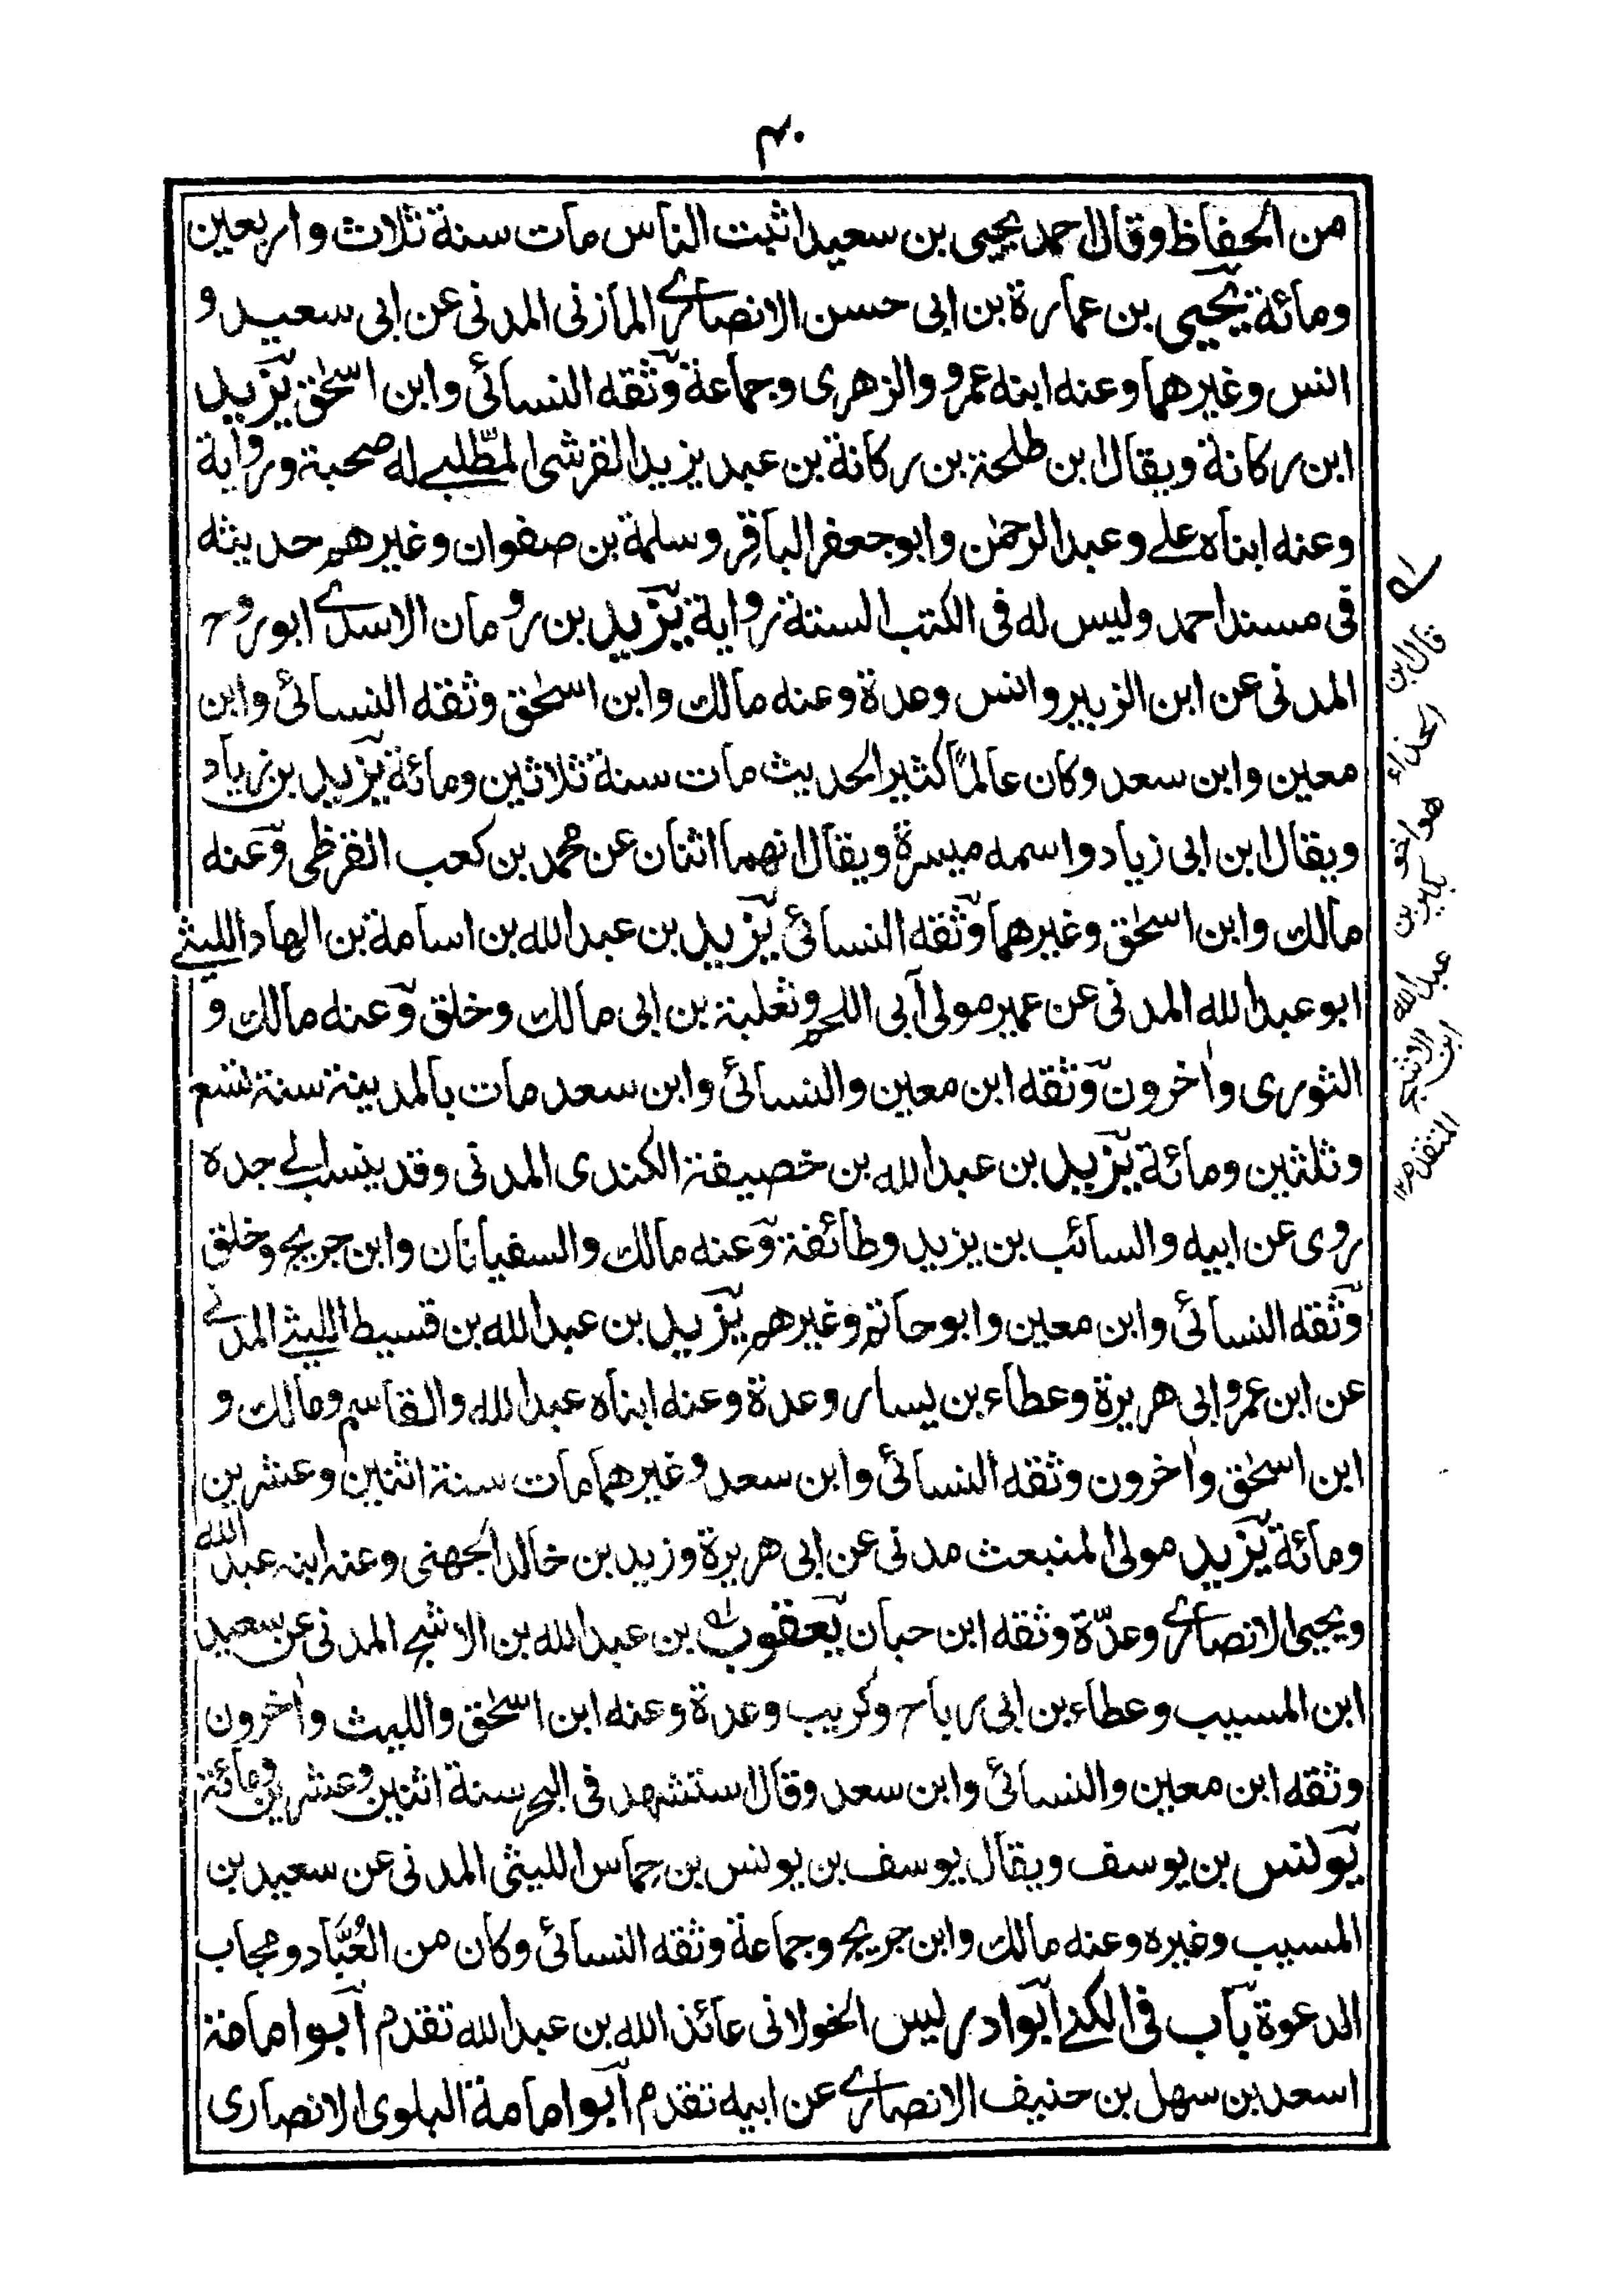 ۴۰
من الحفاظ وقال احمد يحيى بن سعيد اثبت الناس مات سنة ثلاث واربعين
ومائة يحيى بن عمارة بن ابى حسن الانصارے المازنى المدنى عن ابى سعيد و
انس وغيرهما وعنه ابنه عمرو والزهرى وجماعة وثقه النسائى وابن اسحٰق يزيد
ابن ركانة ويقال ابن طلحة بن ركانة بن عبد يزيد القرشى المطّلبے له صحبة ورواية
وعنه ابناه علے وعبد الرحمٰن وابو جعفر الباقر وسلمة بن صفوان وغيرهم حديثه
فى مسند احمد وليس له فى الكتب الستة رواية يزيد بن رومان الاسدے ابو روح
المدنى عن ابن الزبير وانس وعدة وعنه مالك وابن اسحٰق وثقه النسائى وابن
معين وابن سعد وكان عالمًا كثير الحديث مات سنة ثلاثين ومائة يزيد بن زياد
ويقال ابن ابى زياد واسمه ميسرة ويقال انهما اثنان عن محمد بن كعب القرظى وعنه
مالك وابن اسحٰق وغيرهما وثقه النسائى يزيد بن عبد الله بن اسامة بن الهاد الليثے
ابو عبد الله المدنى عن عمير مولى آبى اللحم وثعلبة بن ابى مالك وخلق وعنه مالك و
الثورى واٰخرون وثقه ابن معين والنسائى وابن سعد مات بالمدينة سنة تسع
وثلثين ومائة يزيد بن عبد الله بن خصيفة الكندى المدنى وقد ينسب الے جده
روى عن ابيه والسائب بن يزيد وطائفة وعنه مالك والسفيانان وابن جريج وخلق
وثقه النسائى وابن معين وابو حاتم وغيرهم يزيد بن عبد الله بن قسيط الليثے المدنے
عن ابن عمر وابى هريرة وعطاء بن يسار وعدة وعنه ابناه عبد الله والقاسم ومالك و
ابن اسحٰق واٰخرون وثقه النسائى وابن سعد وغيرهما مات سنة اثنين وعشرين
ومائة يزيد مولى المنبعث مدنى عن ابى هريرة وزيد بن خالد الجهنى وعنه ابنه عبد الله
ويحيى الانصارے وعدّة وثقه ابن حبان يعقوب بن عبد الله بن الاشج المدنى عن سعيد
ابن المسيب وعطاء بن ابى رياح وكريب وعدة وعنه ابن اسحٰق والليث واٰخرون
وثقه ابن معين والنسائى وابن سعد وقال استشهد فى البحر سنة اثنين وعشرين ومائة
يونس بن يوسف ويقال يوسف بن يونس بن حِماس الليثى المدنى عن سعيد بن
المسيب وغيره وعنه مالك وابن جريج وجماعة وثقه النسائى وكان من العُبَّاد ومجاب
الدعوة باب فى الكنے ابو ادريس الخولانى عائذ الله بن عبد الله تقدم ابو امامة
اسعد بن سهل بن حنيف الانصارے عن ابيه تقدم ابو امامة البلوى الانصارى
قال ابن
الحذاء
هو اخو
بكير بن
عبد الله
ابن الاشج